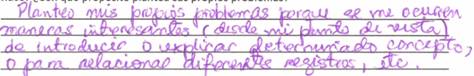 Planteo mis propios problemas porque se me ocurren
maneras interesantes (desde mi punto de vista)
de introducir o explicar determinado concepto,
o para relacionar diferentes registros, etc.